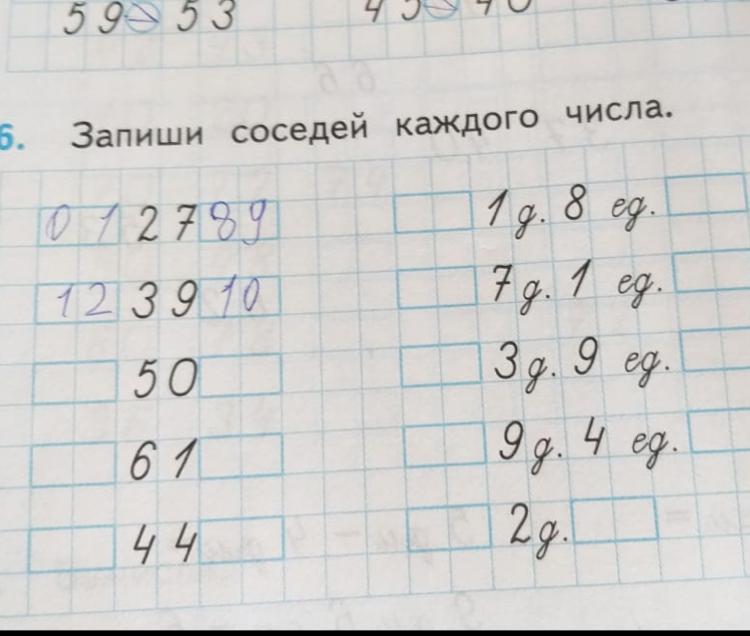 59 > 53 45 > 40
6. Запиши соседей каждого числа.
01 27 89 1 д. 8 ед.
12 39 10 7 д. 1 ед.
50 3 д. 9 ед.
61 9 д. 4 ед.
44 2 д.